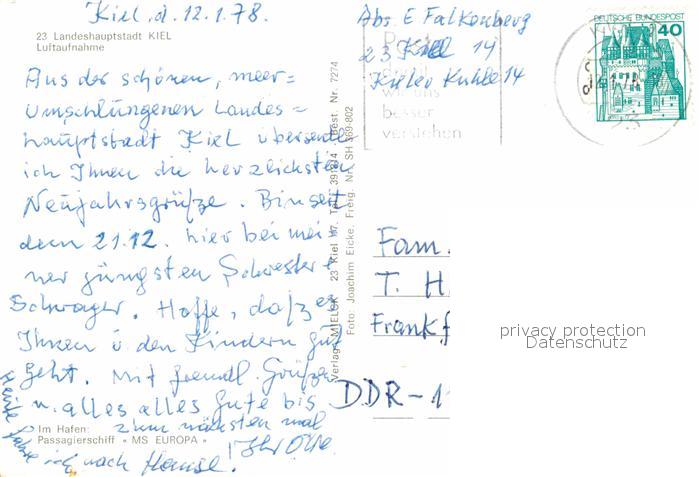 Kiel, d. 12.1.78.
23 Landeshauptstadt KIEL
Luftaufnahme
Aus der schönen, meer=
umschlungenen Landes=
hauptstadt Kiel übersende
ich Ihnen die herzlichsten
Neujahrsgrüße. Bin seit
dem 21.12. hier bei mei
ner jüngsten Schwester +
Schwager. Hoffe, daß es
Ihnen u den Kindern gut
geht. Mit freundl. Grüßen
u. alles alles Gute bis
zum nächsten mal
Ihr Otto.
Heute fahre
ich nach Hause!
Im Hafen:
Passagierschiff « MS EUROPA »
Verlag MIELSK 23 Kiel Tel. Best Nr. 7274
Foto: Joachim Eicke. Freig. Nr. SH 569-802
Abs. E Falkenberg
23 Kiel 14
Kieler Kuhle 14
uns
besser
verstehen
DEUTSCHE BUNDESPOST
40
Fam.
T. H
Frankf
DDR-1
privacy protection
Datenschutz